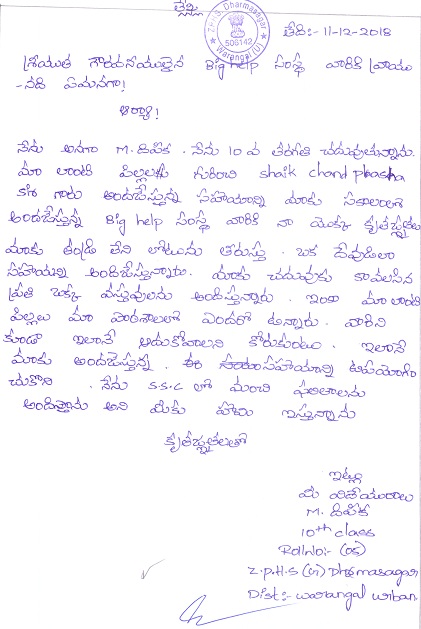 Z.P.H.S. Dharmasagar
506142
Warangal (U)
తేది:- 11-12-2018
శ్రీయుత గౌరవనీయులైన Big help సంస్థ వారికి వ్రాయు
-నది ఏమనగా!
ఆర్యా!
నేను అనగా M. దీపిక. నేను 10 వ తరగతి చదువుతున్నాను.
మా లాంటి పిల్లలకు గురించి shaik chand phasha
గారు అందజేస్తున్న సహాయాన్ని మాకు సకాలంలో
అందజేస్తున్న Big help సంస్థ వారికి నా యొక్క కృతజ్ఞతలు
మాకు తండ్రి లేని లోటును తీరుస్తు. ఒక దేవుడిలా
సహాయాన్ని అందిజేస్తున్నారు. మాకు చదువుకు కావలసిన
ప్రతి ఒక్క వస్తువులను అందిస్తున్నారు. ఇంకా మా లాంటి
పిల్లలు మా పాఠశాలలో ఎందరో ఉన్నారు. వారిని
కూడా ఇలానే ఆదుకోవాలని కోరుకుంటు. ఇలానే
మాకు అందజేస్తున్న. ఈ సహాయాన్ని ఉపయోగిం
చుకొని. నేను S.S.C లో మంచి ఫలితాలను
అందిస్తాను అని మీకు హామి ఇస్తున్నాను
కృతజ్ఞతలతో
ఇట్లు
మీ విధేయురాలు
M. దీపిక
10th class
RollNo:- (05)
Z.P.H.S (G) Dharmasagar
Dist:- warangal urban.